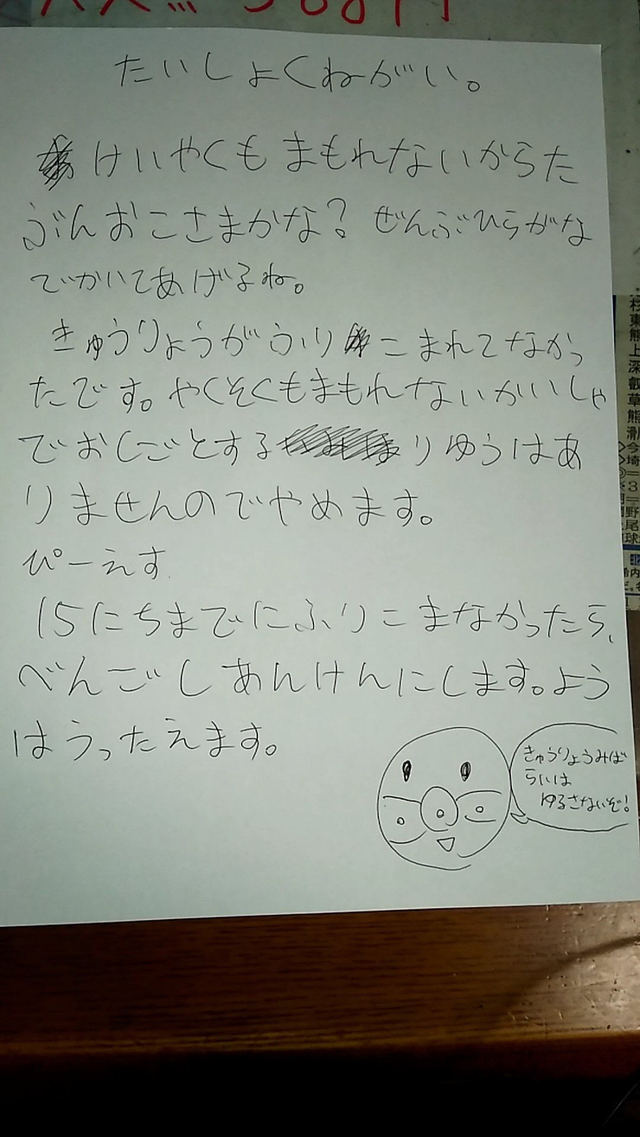 たいしょくねがい。
けいやくもまもれないからた
ぶんおこさまかな？ぜんぶひらがな
でかいてあげるね。
きゅうりょうがふりこまれてなかっ
たです。やくそくもまもれないかいしゃ
でおしごとするりゆうはあ
りませんのでやめます。
ぴーえす
15にちまでにふりこまなかったら、
べんごしあんけんにします。よう
はうったえます。
きゅうりょうみば
らいは
ゆるさないぞ！